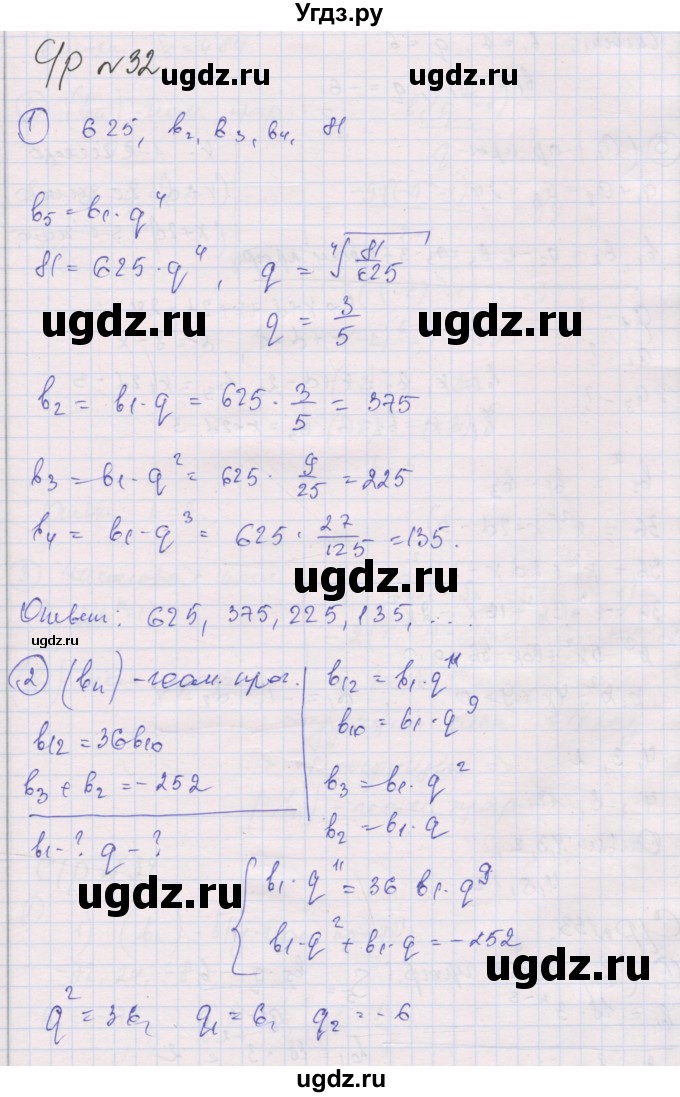 Угдз.ру
СР №32
ugdz.ru ugdz.ru
① 625, b₂, b₃, b₄, 81
b₅ = b₁·q⁴
81 = 625·q⁴, q = ⁴√(81/625)
ugdz.ru q = 3/5 ugdz.ru
b₂ = b₁·q = 625·3/5 = 375
b₃ = b₁·q² = 625·9/25 = 225
b₄ = b₁·q³ = 625·27/125 = 135.
ugdz.ru
Ответ: 625, 375, 225, 135, ...
ugdz.ru
② (bₙ) - геом. прог.
b₁₂ = 36b₁₀
b₃ + b₂ = -252
b₁ - ? q - ?
b₁₂ = b₁·q¹¹
b₁₀ = b₁·q⁹
b₃ = b₁·q²
b₂ = b₁·q
ugdz.ru
{ b₁·q¹¹ = 36 b₁·q⁹
b₁·q² + b₁·q = -252
ugdz.ru
q² = 36, q₁ = 6, q₂ = -6
ugdz.ru